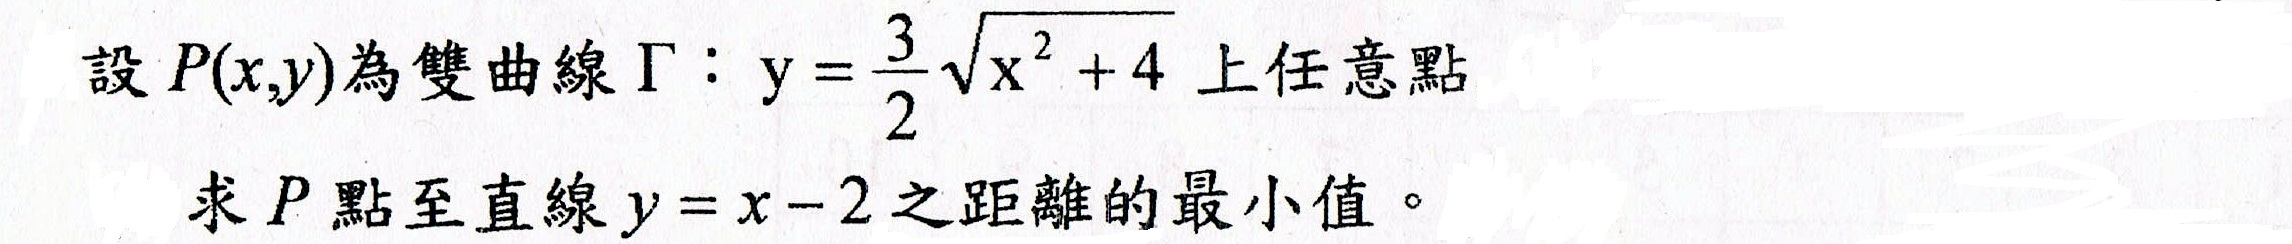 設 P(x,y)為雙曲線 Γ：y = \frac{3}{2}\sqrt{x^2+4} 上任意點
求 P 點至直線 y = x − 2 之距離的最小值。